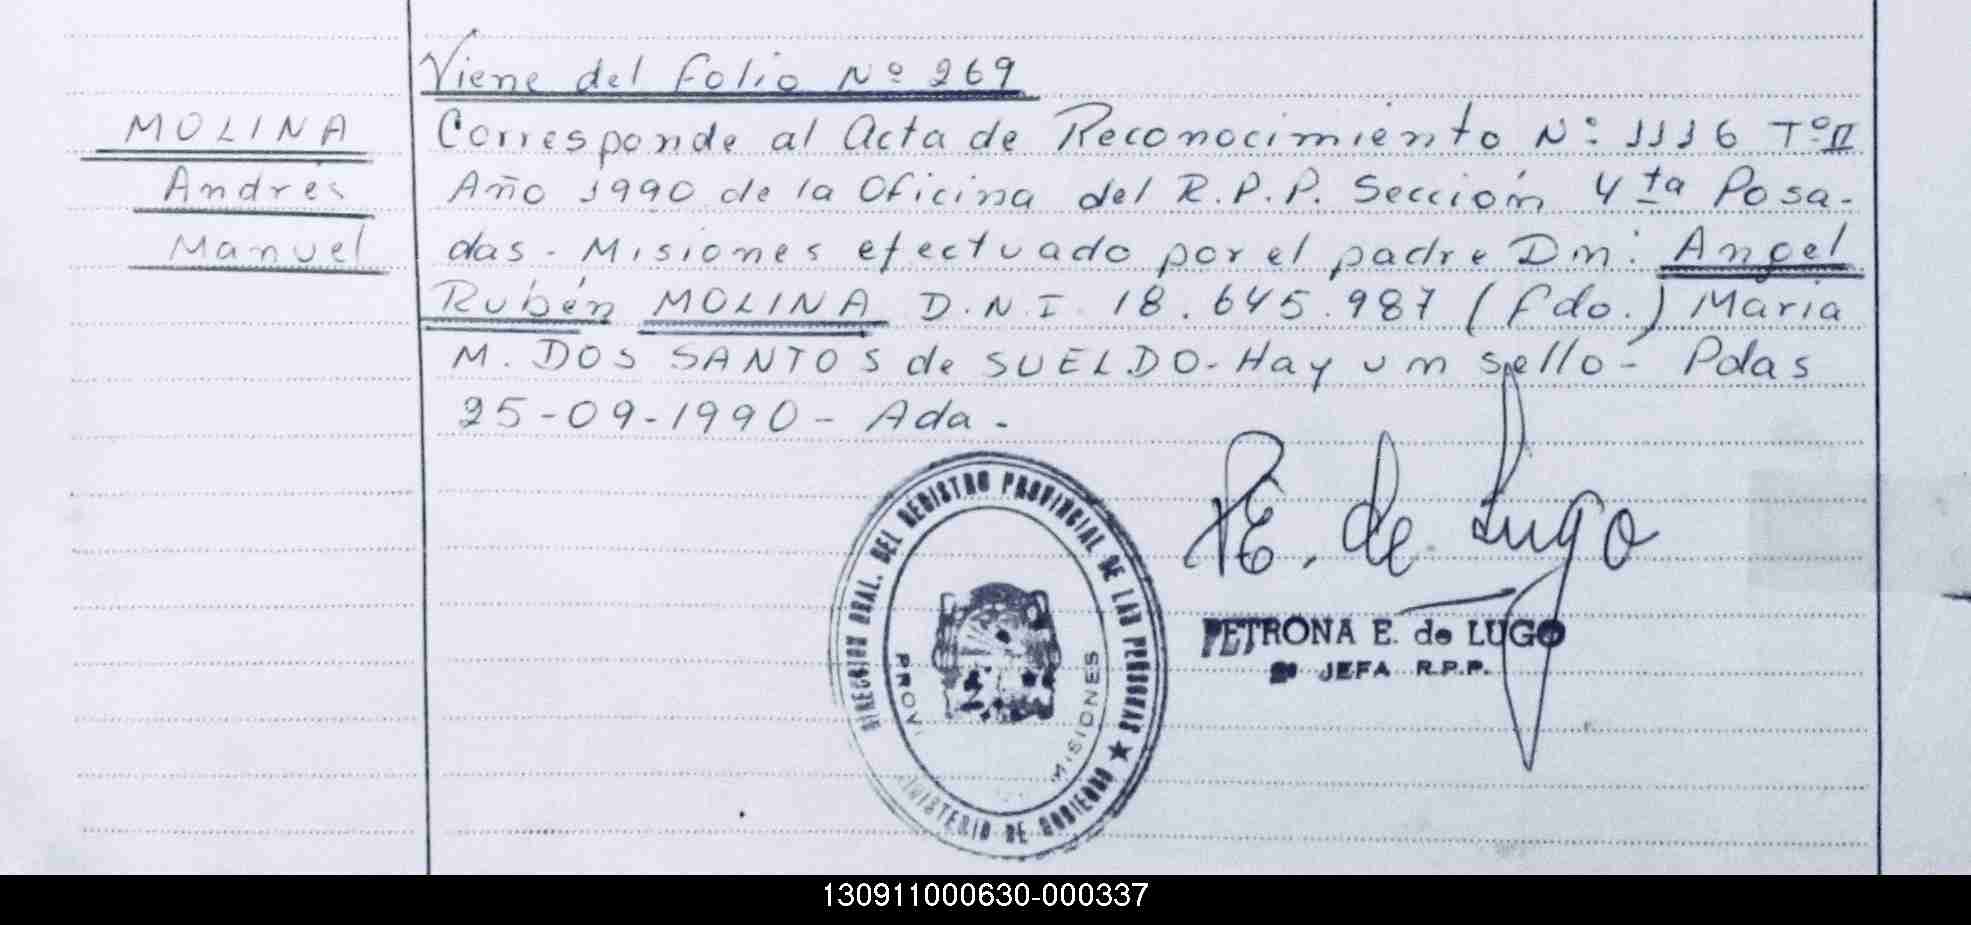 Viene del folio Nº 269
MOLINA
Andrés
Manuel
Corresponde al Acta de Reconocimiento Nº 1116 Tº II
Año 1990 de la Oficina del R.P.P. Sección 4ta Posa-
das - Misiones efectuado por el padre Dn: Angel
Rubén MOLINA D.N.I. 18.645.987 (fdo.) Maria
M. DOS SANTOS de SUELDO - Hay un sello - Pdas
25-09-1990 - Ada.
P E. de Lugo
PETRONA E. de LUGO
JEFA R.P.P.
DIRECCION GRAL. DEL REGISTRO PROVINCIAL DE LAS PERSONAS ★
MINISTERIO DE GOBIERNO
MISIONES
130911000630-000337